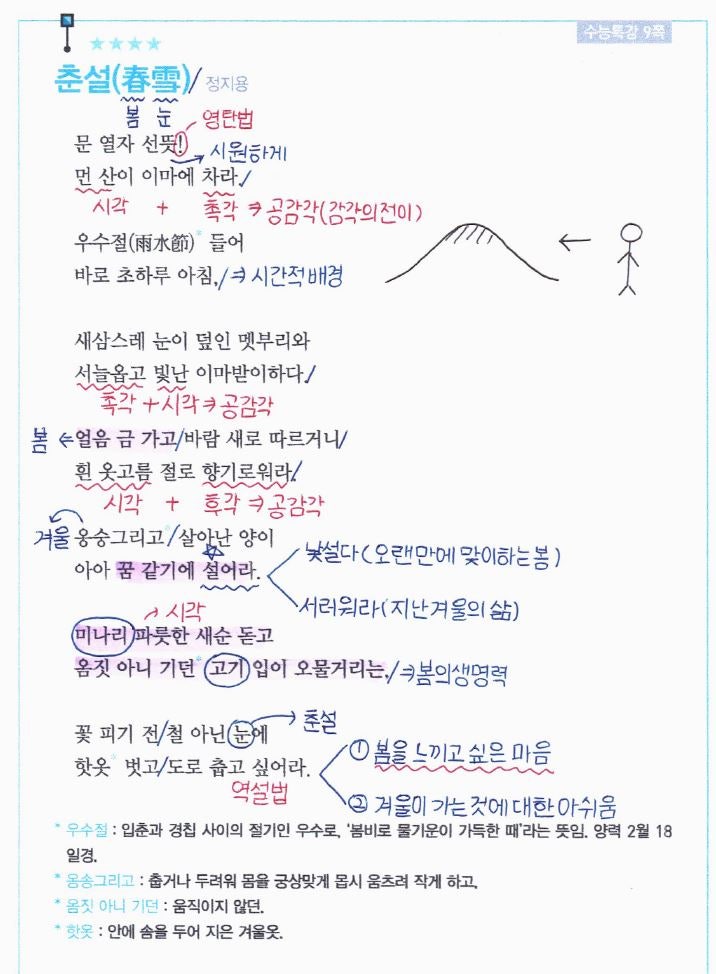 수능특강 9쪽
★★★★
춘설(春雪)/ 정지용
봄 눈 영탄법
문 열자 선뜻! 시원하게
먼 산이 이마에 차라./
시각 + 촉각 ⇒ 공감각(감각의전이)
우수절(雨水節)* 들어
바로 초하루 아침,/⇒시간적배경
새삼스레 눈이 덮인 멧부리와
서늘옵고 빛난 이마받이하다./
촉각+시각⇒공감각
봄 ⇐얼음 금 가고/바람 새로 따르거니/
흰 옷고름 절로 향기로워라./
시각 + 후각 ⇒공감각
겨울 옹숭그리고*/살아난 양이
낯설다(오랜만에 맞이하는봄)
아아 꿈 같기에 설어라.
서러워라(지난겨울의 삶)
시각
미나리 파릇한 새순 돋고
옴짓 아니 기던* 고기 입이 오물거리는,/⇒봄의생명력
춘설
꽃 피기 전/철 아닌 눈에
① 봄을 느끼고 싶은 마음
핫옷* 벗고/도로 춥고 싶어라.
역설법
② 겨울이 가는것에대한아쉬움
* 우수절 : 입춘과 경칩 사이의 절기인 우수로, '봄비로 물기운이 가득한 때'라는 뜻임. 양력 2월 18
일경.
* 옹송그리고 : 춥거나 두려워 몸을 궁상맞게 몹시 움츠려 작게 하고.
* 옴짓 아니 기던 : 움직이지 않던.
* 핫옷 : 안에 솜을 두어 지은 겨울옷.